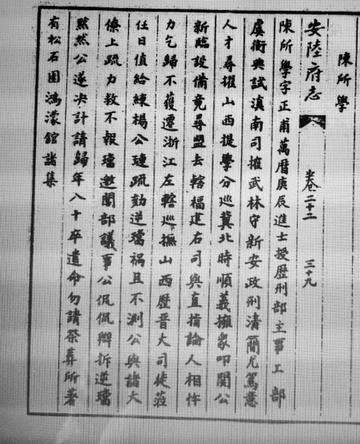 陳所學
安陸府志 卷二十二 三十九
陳所學字正甫萬曆庚辰進士授歷刑部主事工部
虞衡典試滇南司擢武林守新安政刑清簡尤篤意
人才尋擢山西提學分巡冀北時順義擁衆叩關公
新臨設備竟尋盟去轄福建右司與直指論人相忤
力乞歸不獲遷浙江左轄巡撫山西歷晉大司徒莅
任日值給諫楊公璉疏劾逆璫禍且不測公與諸大
僚上疏力救不報璫邀閣部議事公侃侃辯折逆璫
默然公遂決計請歸年八十卒遺命勿請祭葬所著
有松石園鴻濛館諸集